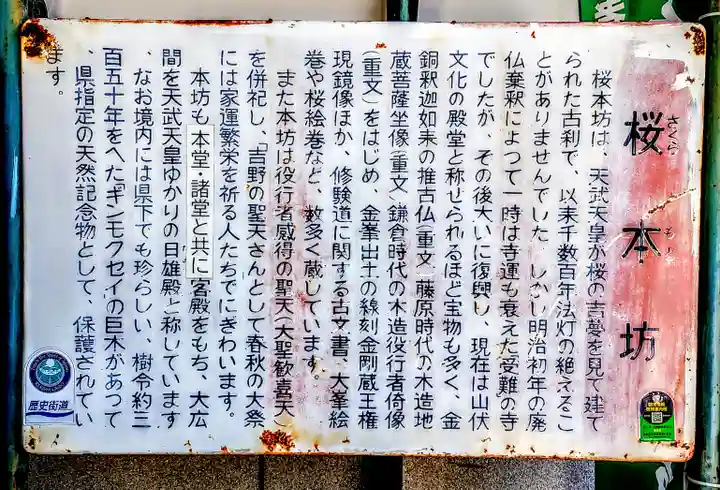 桜本坊
さくら もと
桜本坊は、天武天皇が桜の吉夢を見て建て
られた古刹で、以来千数百年法灯の絶えるこ
とがありませんでした しかし明治初年の廃
仏棄釈によつて一時は寺運も衰えた受難の寺
でしたが、その後大いに復興し、現在は山伏
文化の殿堂と称せられるほど宝物も多く、金
銅釈迦如来の推古仏(重文)藤原時代の木造地
蔵菩薩坐像(重文)鎌倉時代の木造役行者倚像
(重文)をはじめ、金峯出土の線刻金剛蔵王権
現鏡像ほか、修験道に関する古文書、大峯絵
巻や桜絵巻など、数多く蔵しています。
また本坊は役行者感得の聖天(大聖歓喜天)
を併祀し、「吉野の聖天さん」として春秋の大祭
には家運繁栄を祈る人たちでにぎわいます。
本坊も本堂・諸堂と共に客殿をもち、大広
間を天武天皇ゆかりの日雄殿と称しています
、なお境内には県下でも珍らしい、樹令約三
百五十年をへた「ギンモクセイ」の巨木があつて
、県指定の天然記念物として、保護されてい
ます。
歴史街道